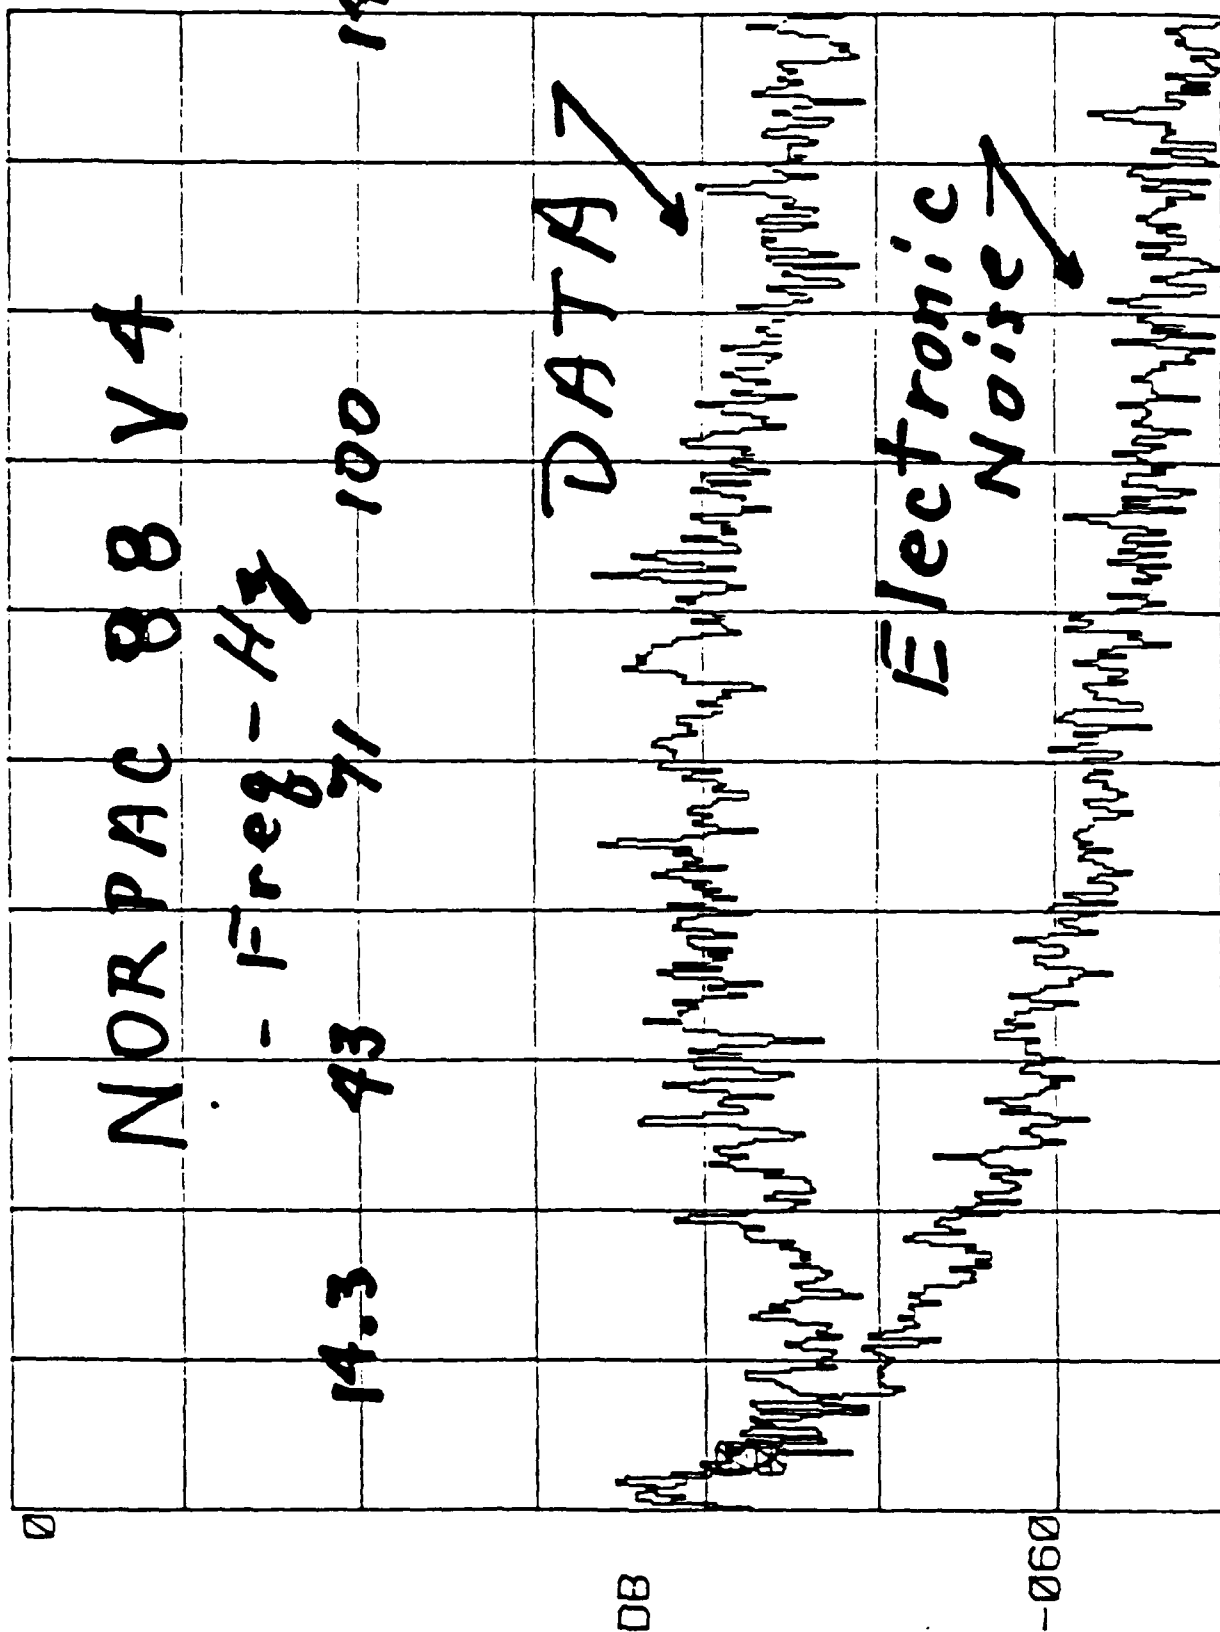 NORPAC 88 V4
- Freq - Hz
14.3 43 71 100
DATA
Electronic
Noise
0
DB
-060